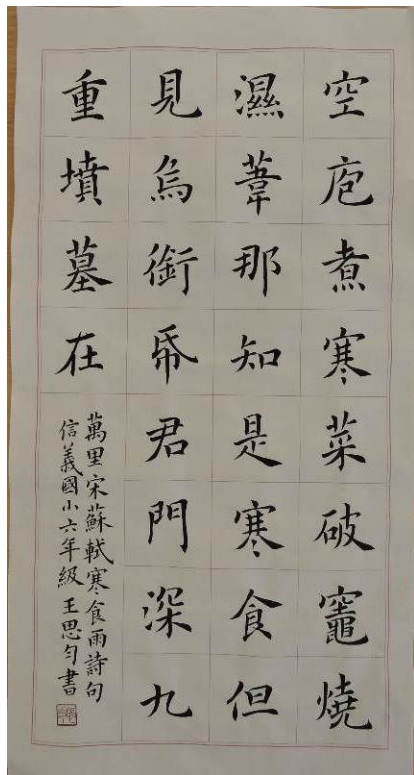 空庖煮寒菜破竈燒
濕葦那知是寒食但
見烏銜帋君門深九
重墳墓在
萬里宋蘇軾寒食雨詩句
信義國小六年級王思勻書